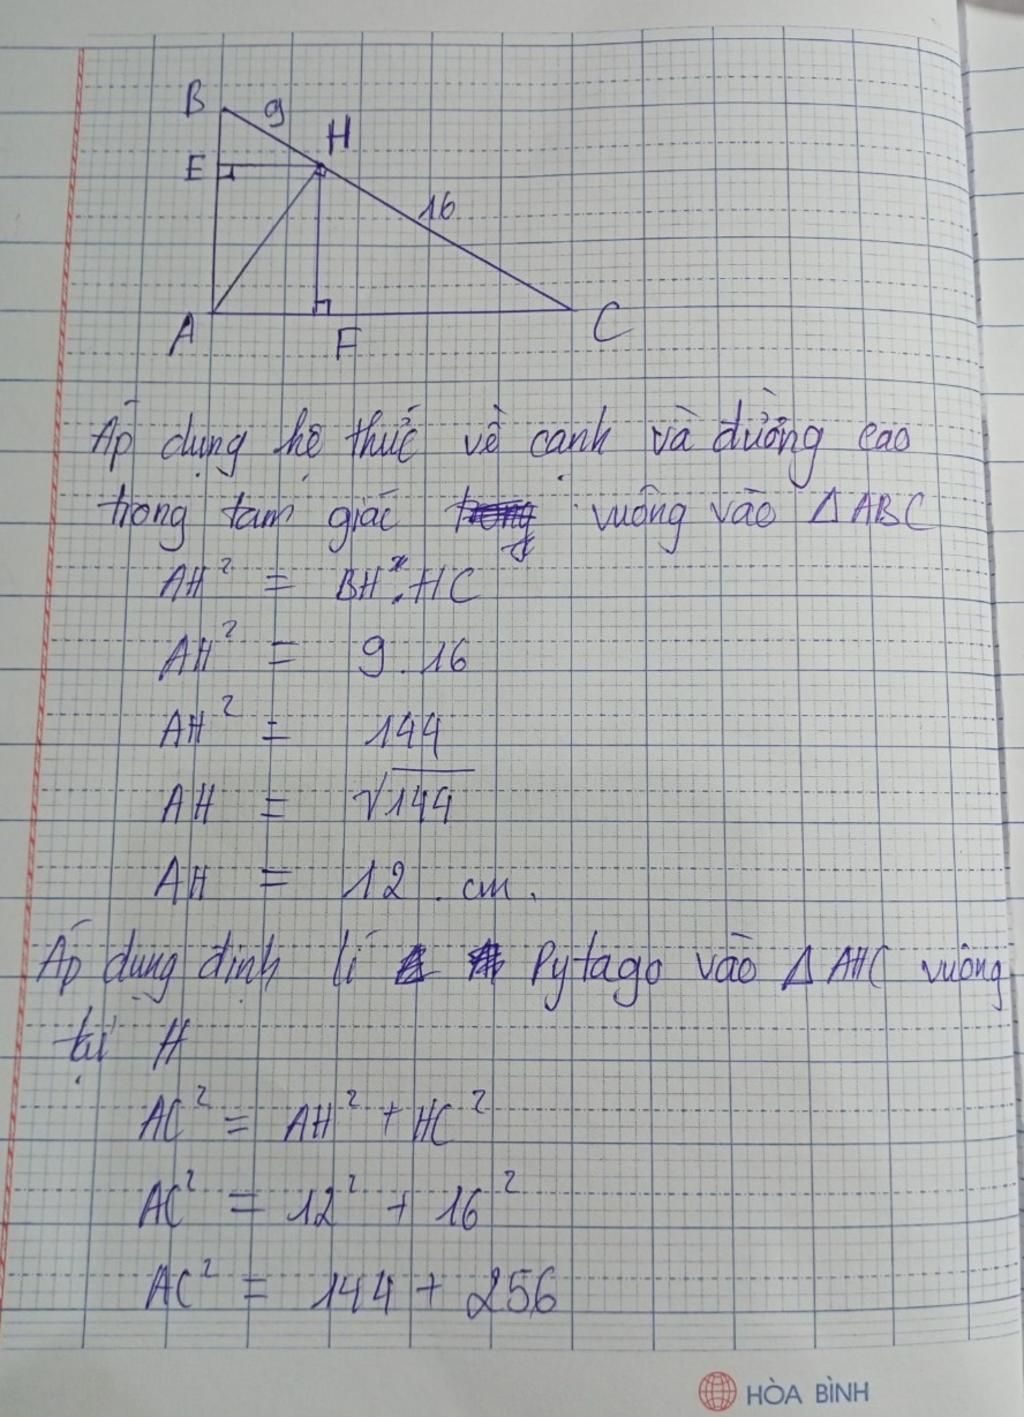 B
9
H
E
16
A
F
C
Áp dụng hệ thức về cạnh và đường cao
trong tam giác vuông vào ΔABC
AH² = BH.HC
AH² = 9.16
AH² = 144
AH = √144
AH = 12 cm.
Áp dụng định lí Pytago vào ΔAHC vuông
tại H
AC² = AH² + HC²
AC² = 12² + 16²
AC² = 144 + 256
HÒA BÌNH